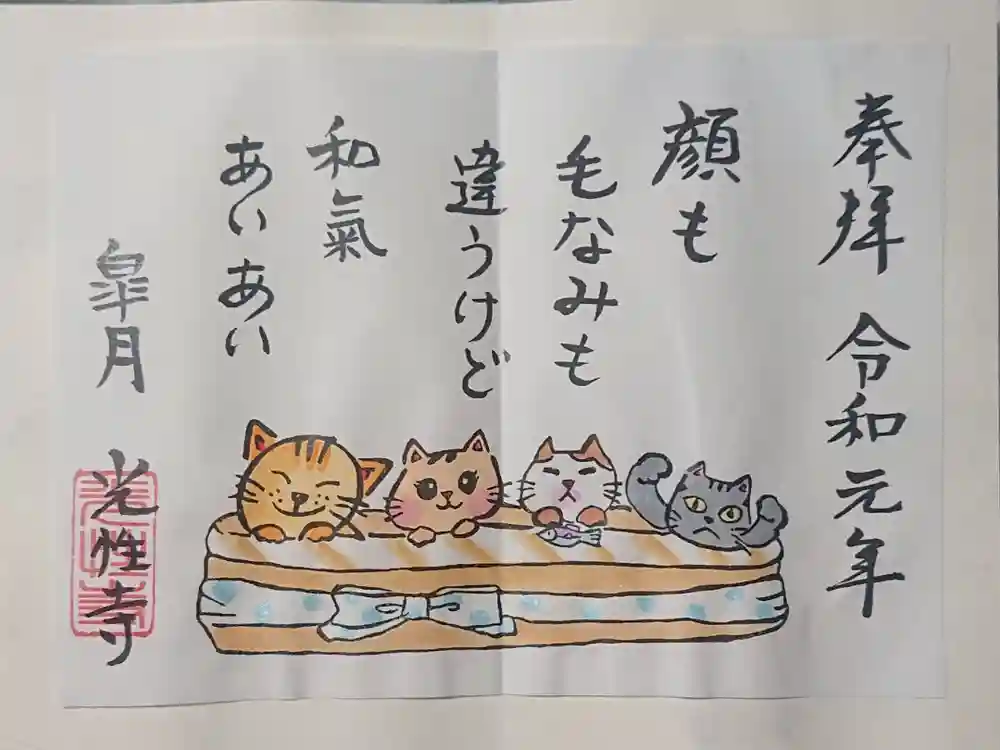 奉拝 令和元年
顔も
毛なみも
違うけど
和氣
あいあい
皐月 光性寺